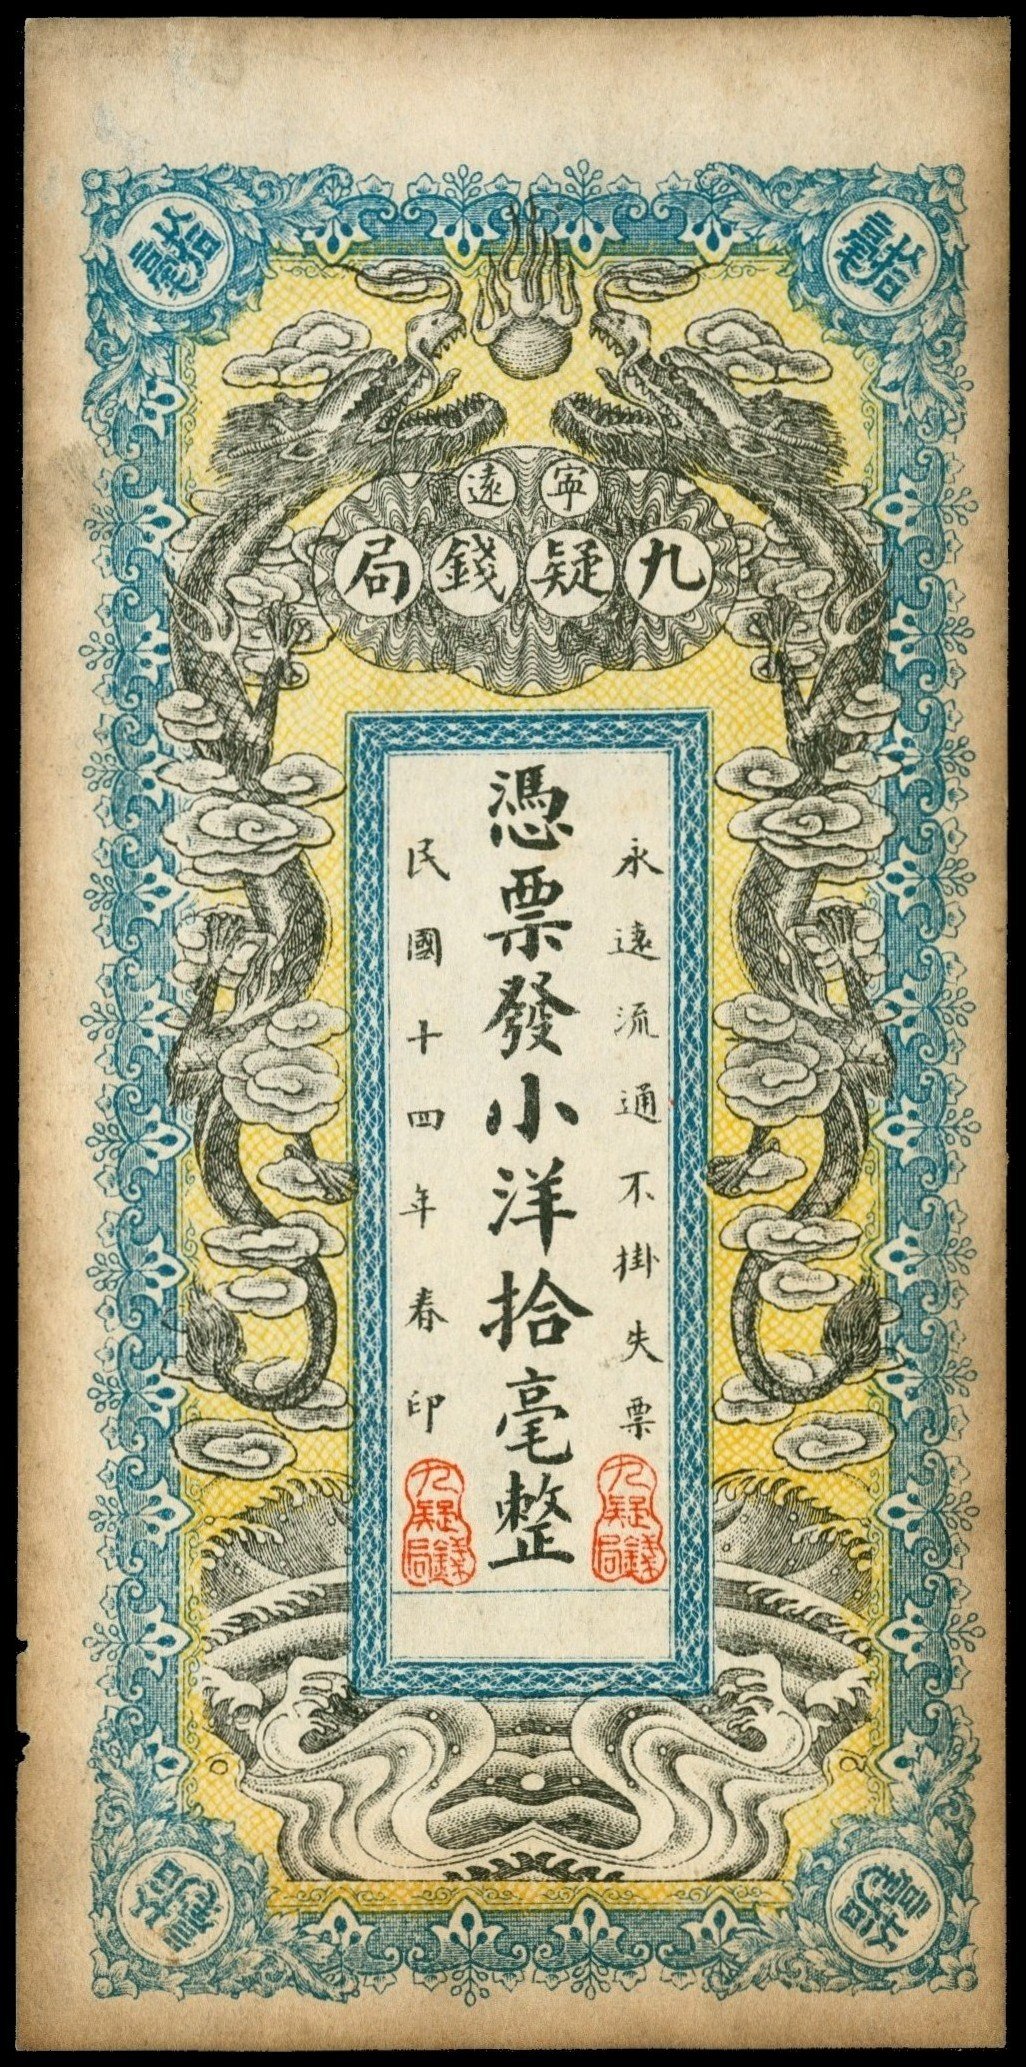 拾毫
拾毫
寕遠
九疑錢局
永遠流通不掛失票
憑票發小洋拾毫整
民國十四年春印
九疑錢局
九疑錢局
拾毫
拾毫